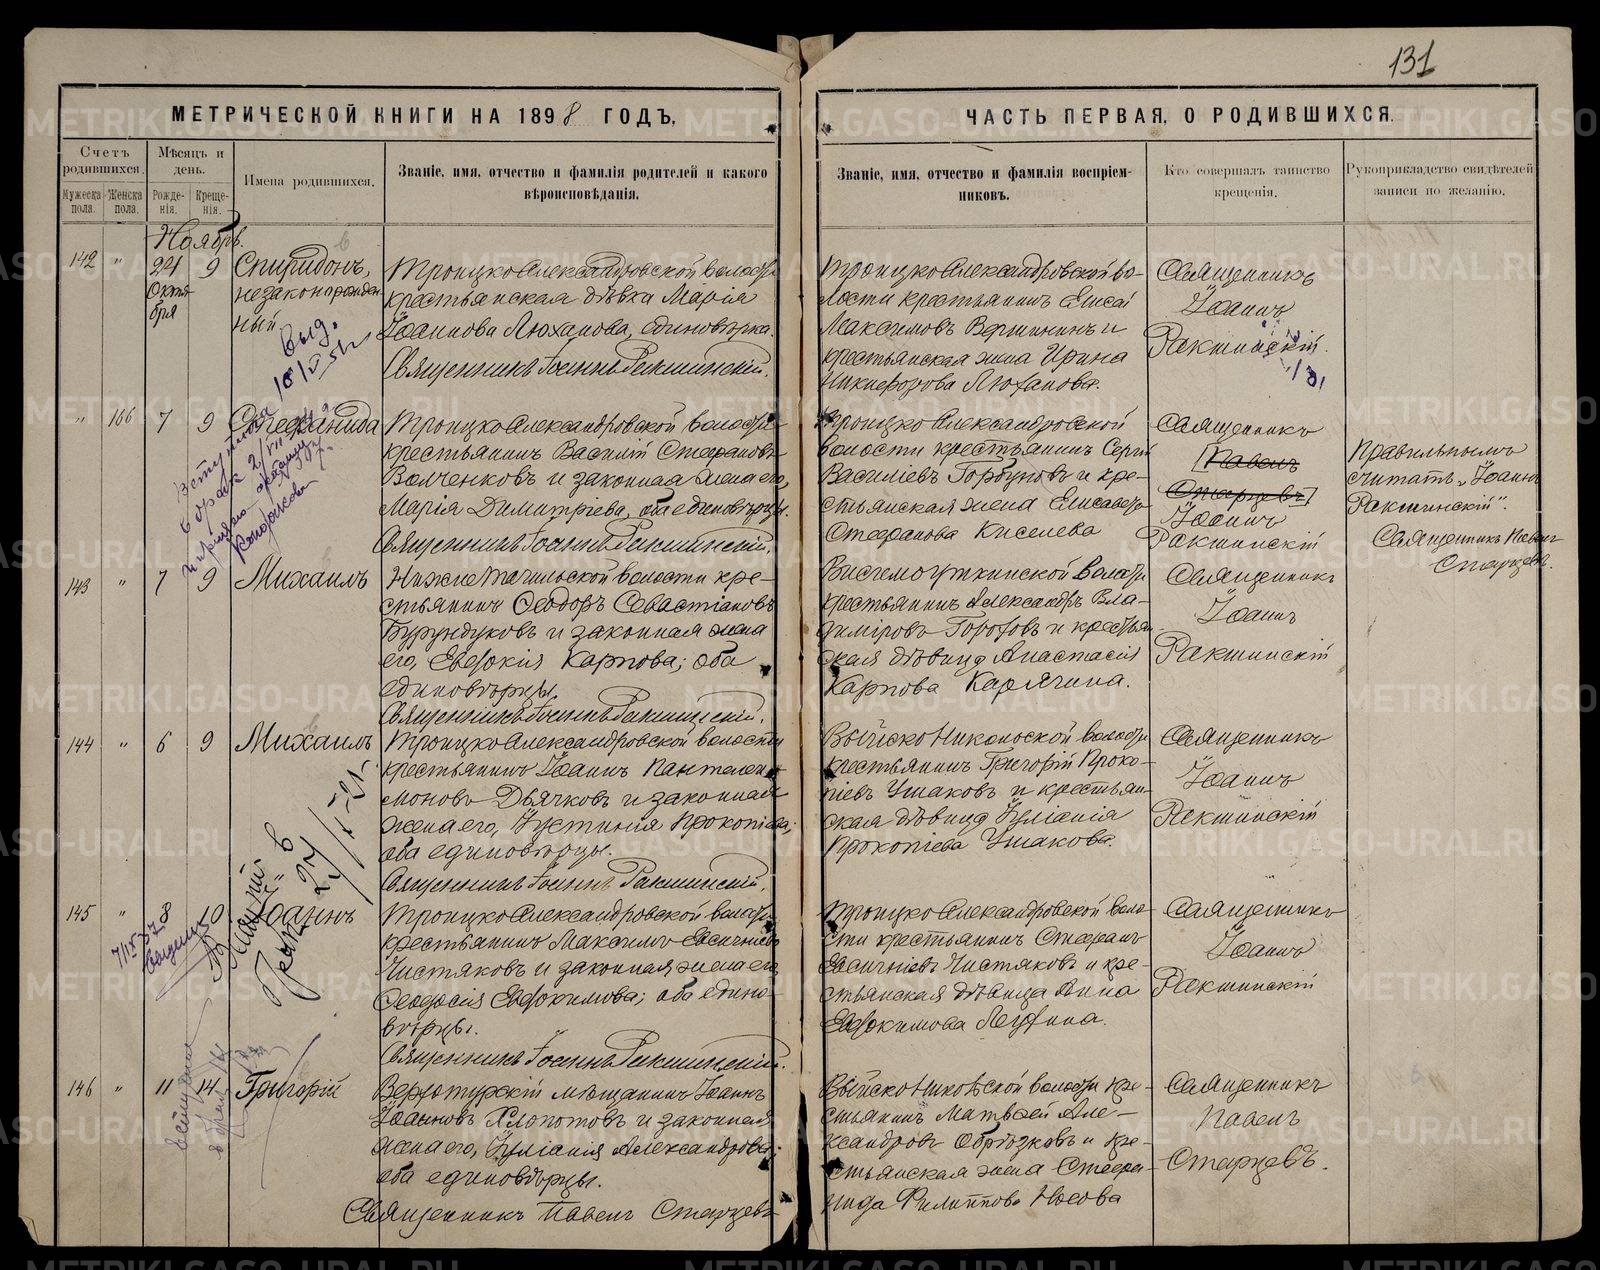 131
МЕТРИЧЕСКОЙ КНИГИ НА 1898 ГОДЪ,
Счетъ родившихся.
Мѣсяцъ и день.
Имена родившихся.
Званіе, имя, отчество и фамилія родителей и какого вѣроисповѣданія.
Мужеска пола.
Женска пола.
Рожде-нія.
Креще-нія.
ЧАСТЬ ПЕРВАЯ, О РОДИВШИХСЯ.
Званіе, имя, отчество и фамилія воспріем-никовъ.
Кто совершалъ таинство крещенія.
Рукоприкладство свидѣтелей записи по желанію.
Ноябрь.
142 " 24 Октя-бря 9
Спиридонъ,
незаконорожден
ный
Троицко Александровской волости
крестьянская дѣвка Марія
Іоаннова Люханова, единовѣрка.
Священникъ Іоаннъ Ракшинскій.
Троицко Александровской во-
лости крестьянинъ Елисей
Максимовъ Вершининъ и
крестьянская жена Ирина
Никифорова Люханова.
Священникъ
Іоаннъ
Ракшинскій.
Выд.
" 166 7 9
Стефанида
Троицко Александровской волости
крестьянинъ Василій Стефановъ
Волченковъ и законная жена его,
Марія Димитріева, оба единовѣрцы.
Священникъ Іоаннъ Ракшинскій.
Троицко Александровской
волости крестьянинъ Сергій
Василіевъ Горбуновъ и кре-
стьянская жена Елисавета
Стефанова Киселева
Священникъ
[Павелъ
Старцевъ]
Іоаннъ
Ракшинскій
Правильнымъ
считать „Іоаннъ
Ракшинскій".
Священникъ Павелъ
Старцевъ.
143 " 7 9
Михаилъ
Нижне Тагильской волости кре-
стьянинъ Ѳеодоръ Севастіановъ
Бурундуковъ и законная жена
его, Евдокія Карпова; оба
единовѣрцы.
Священникъ Іоаннъ Ракшинскій.
Висимоуткинской волости
крестьянинъ Александръ Вла-
диміровъ Горохов и крестьян-
ская дѣвица Анастасія
Карпова Карягина.
Священникъ
Іоаннъ
Ракшинскій
144 " 6 9
Михаилъ
Троицко Александровской волости
крестьянинъ Іоаннъ Пантелеи-
моновъ Дьячковъ и законная
жена его, Іустинія Прокопіева;
оба единовѣрцы.
Священникъ Іоаннъ Ракшинскій.
Выйско Никольской волости
крестьянинъ Григорій Проко-
піевъ Ушаковъ и крестьян-
ская дѣвица Іуліанія
Прокопіева Ушакова.
Священникъ
Іоаннъ
Ракшинскій
145 " 8 10
Іоаннъ
Троицко Александровской волости
крестьянинъ Максимъ Евсигніевъ
Чистяковъ и законная жена его,
Ѳеодосія Евдокимова; оба едино-
вѣрцы.
Священникъ Іоаннъ Ракшинскій.
Троицко Александровской воло-
сти крестьянинъ Стефанъ
Евсигніевъ Чистяковъ и кре-
стьянская дѣвица Анна
Евдокимова
Священникъ
Іоаннъ
Ракшинскій
146 " 11 14
Григорій
Верхотурскій мѣщанинъ Іоаннъ
Іоанновъ Хлопотовъ и законная
жена его, Іуліанія Александрова;
оба единовѣрцы.
Священникъ Павелъ Старцевъ
Выйско Николской волости кре-
стьянинъ Матвѣй Але-
ксандровъ Обрѣзковъ и кре-
стьянская жена Стефа-
нида Филиппова Носова
Священникъ
Павелъ
Старцевъ.
METRIKI.GASO-URAL.RU